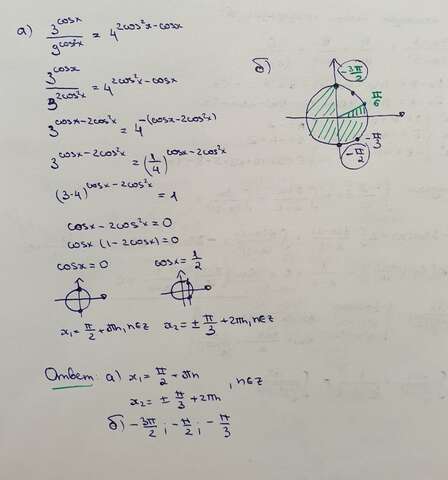 а) 3^cosx / 9^cos²x = 4^2cos²x-cosx
3^cosx / 3^2cos²x = 4^2cos²x-cosx
3^cosx-2cos²x = 4^-(cosx-2cos²x)
3^cosx-2cos²x = (1/4)^cosx-2cos²x
(3·4)^cosx-2cos²x = 1
cosx-2cos²x=0
cosx(1-2cosx)=0
cosx=0 cosx=1/2
x₁=π/2+πn, n∈z x₂=±π/3+2πn, n∈z
Ответ: а) x₁=π/2+πn
x₂=±π/3+2πn , n∈z
б) -3π/2; -π/2; -π/3
б) -3π/2
π/6
-π/3
-π/2